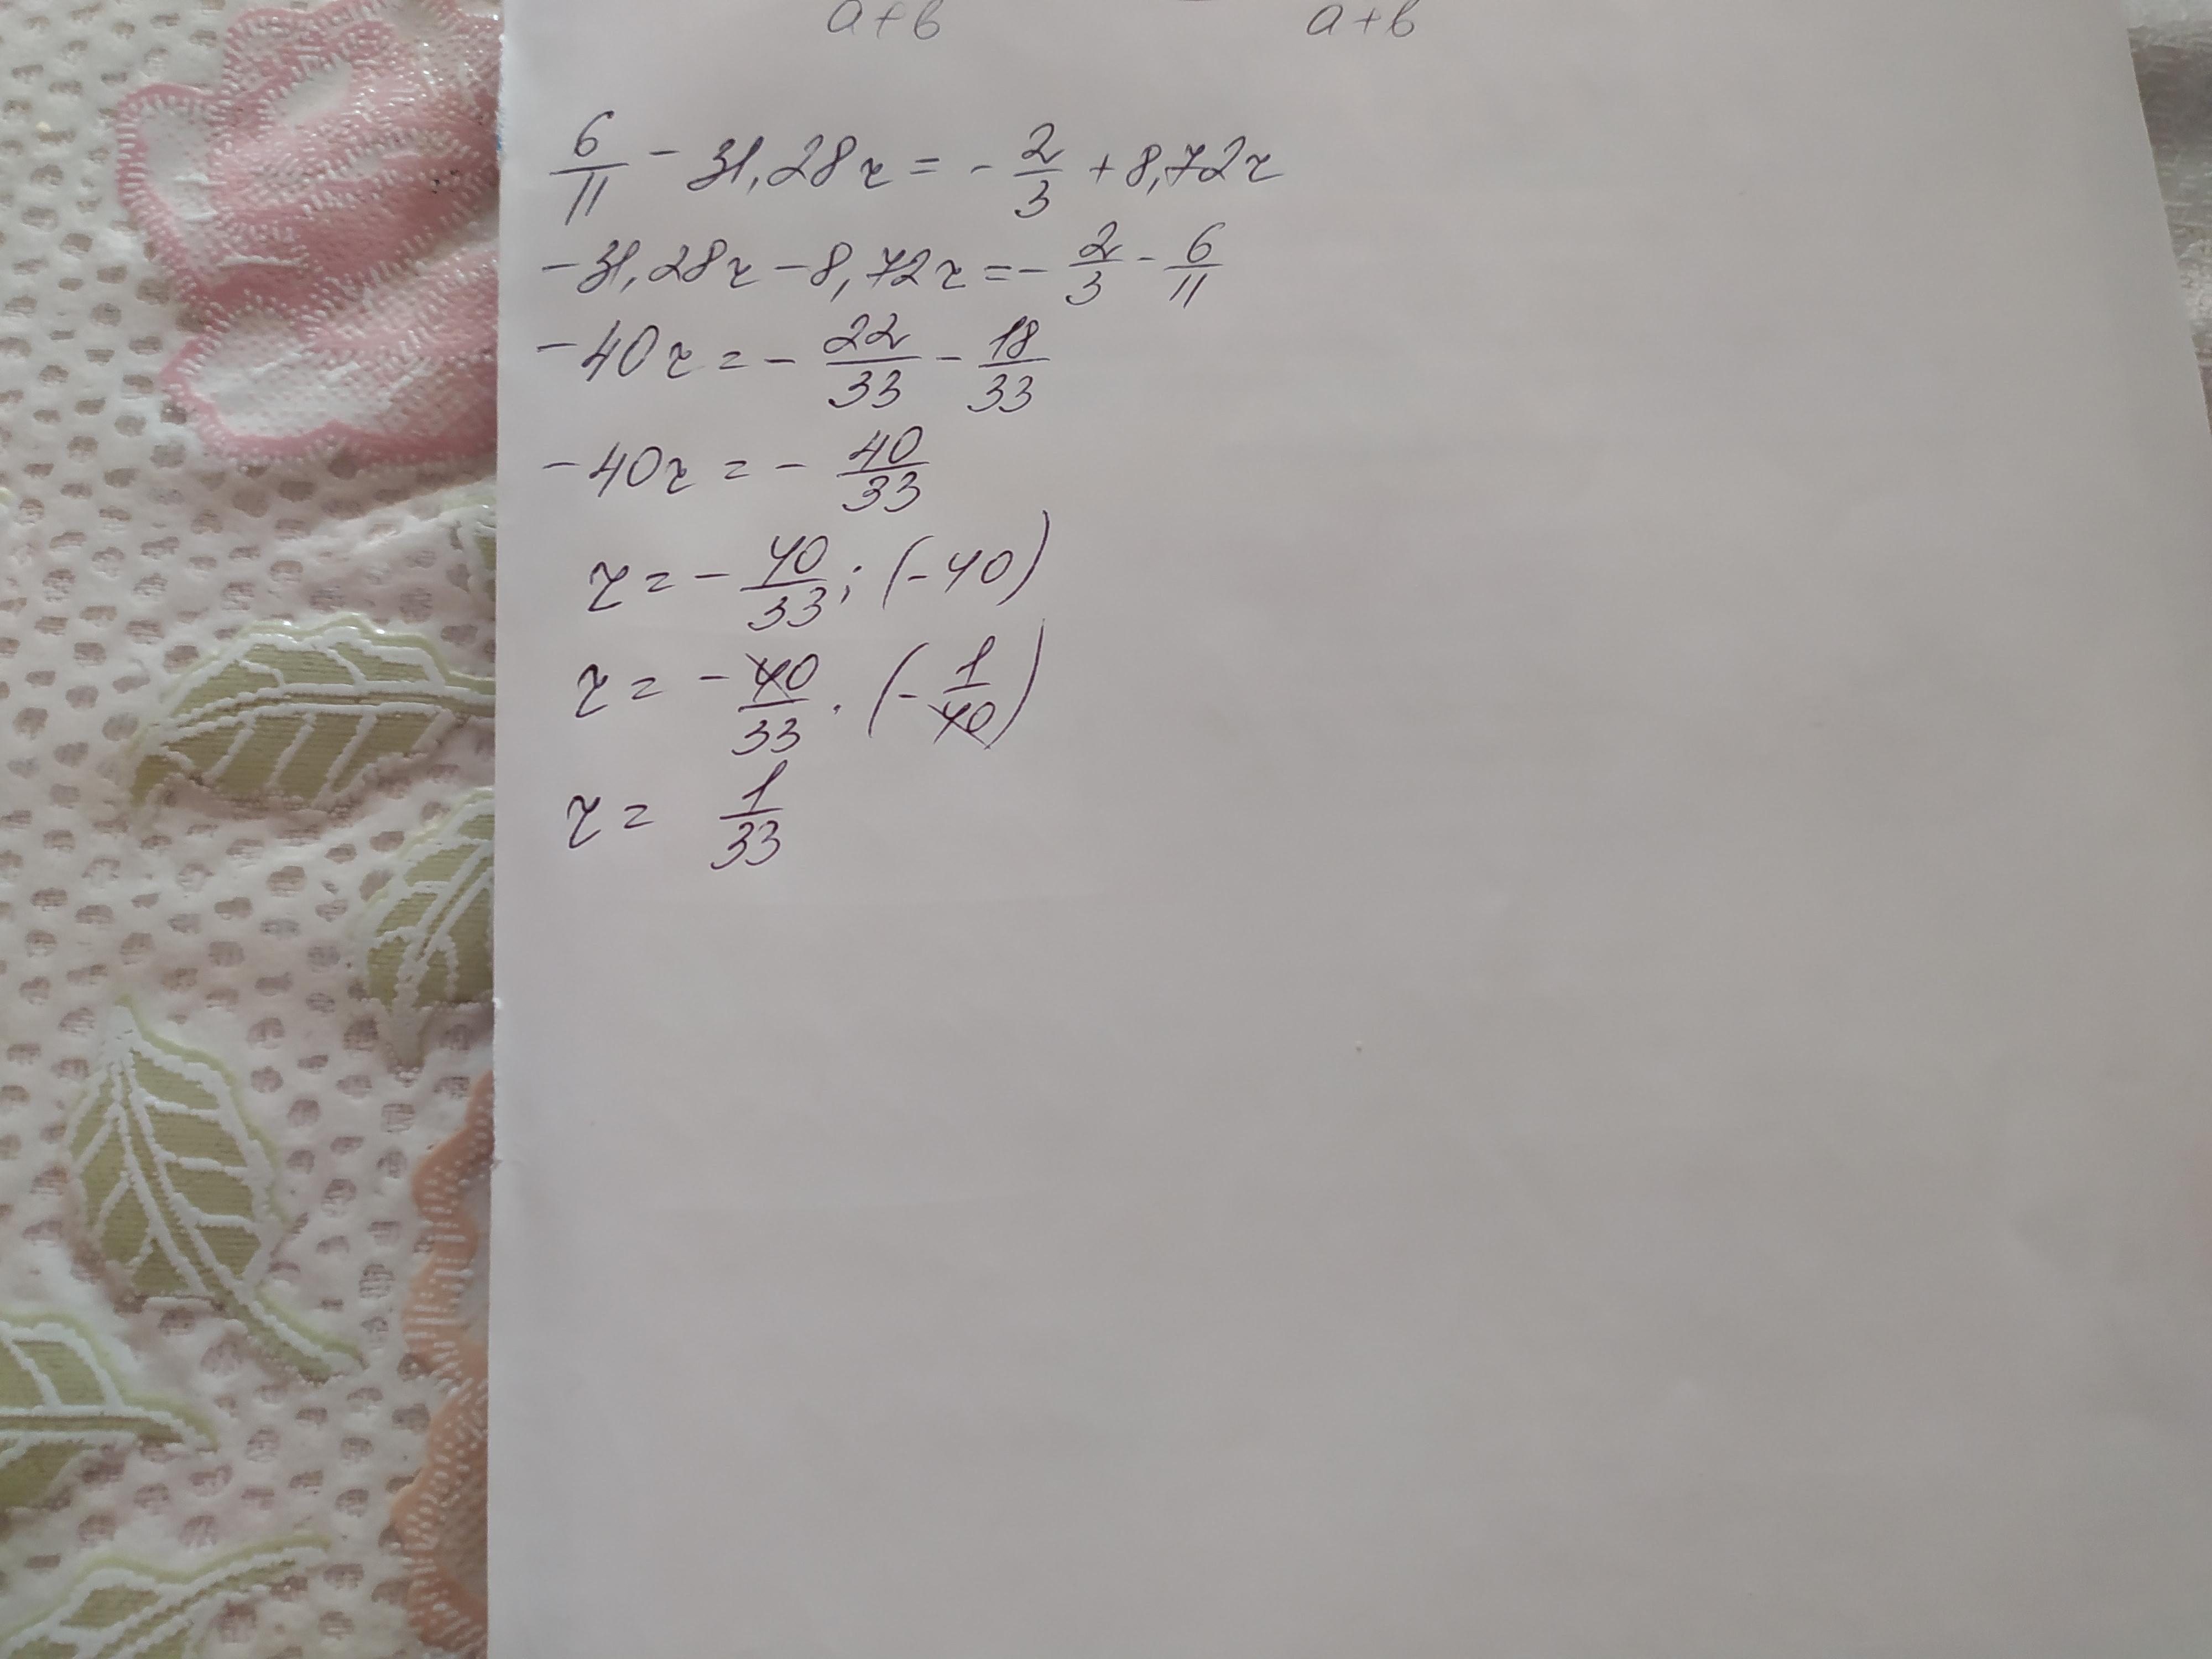 a+b a+b
6/11 - 31,28r = - 2/3 + 8,72r
-31,28r - 8,72r = - 2/3 - 6/11
-40r = - 22/33 - 18/33
-40r = - 40/33
r = - 40/33 : (-40)
r = - 40/33 · (- 1/40)
r = 1/33